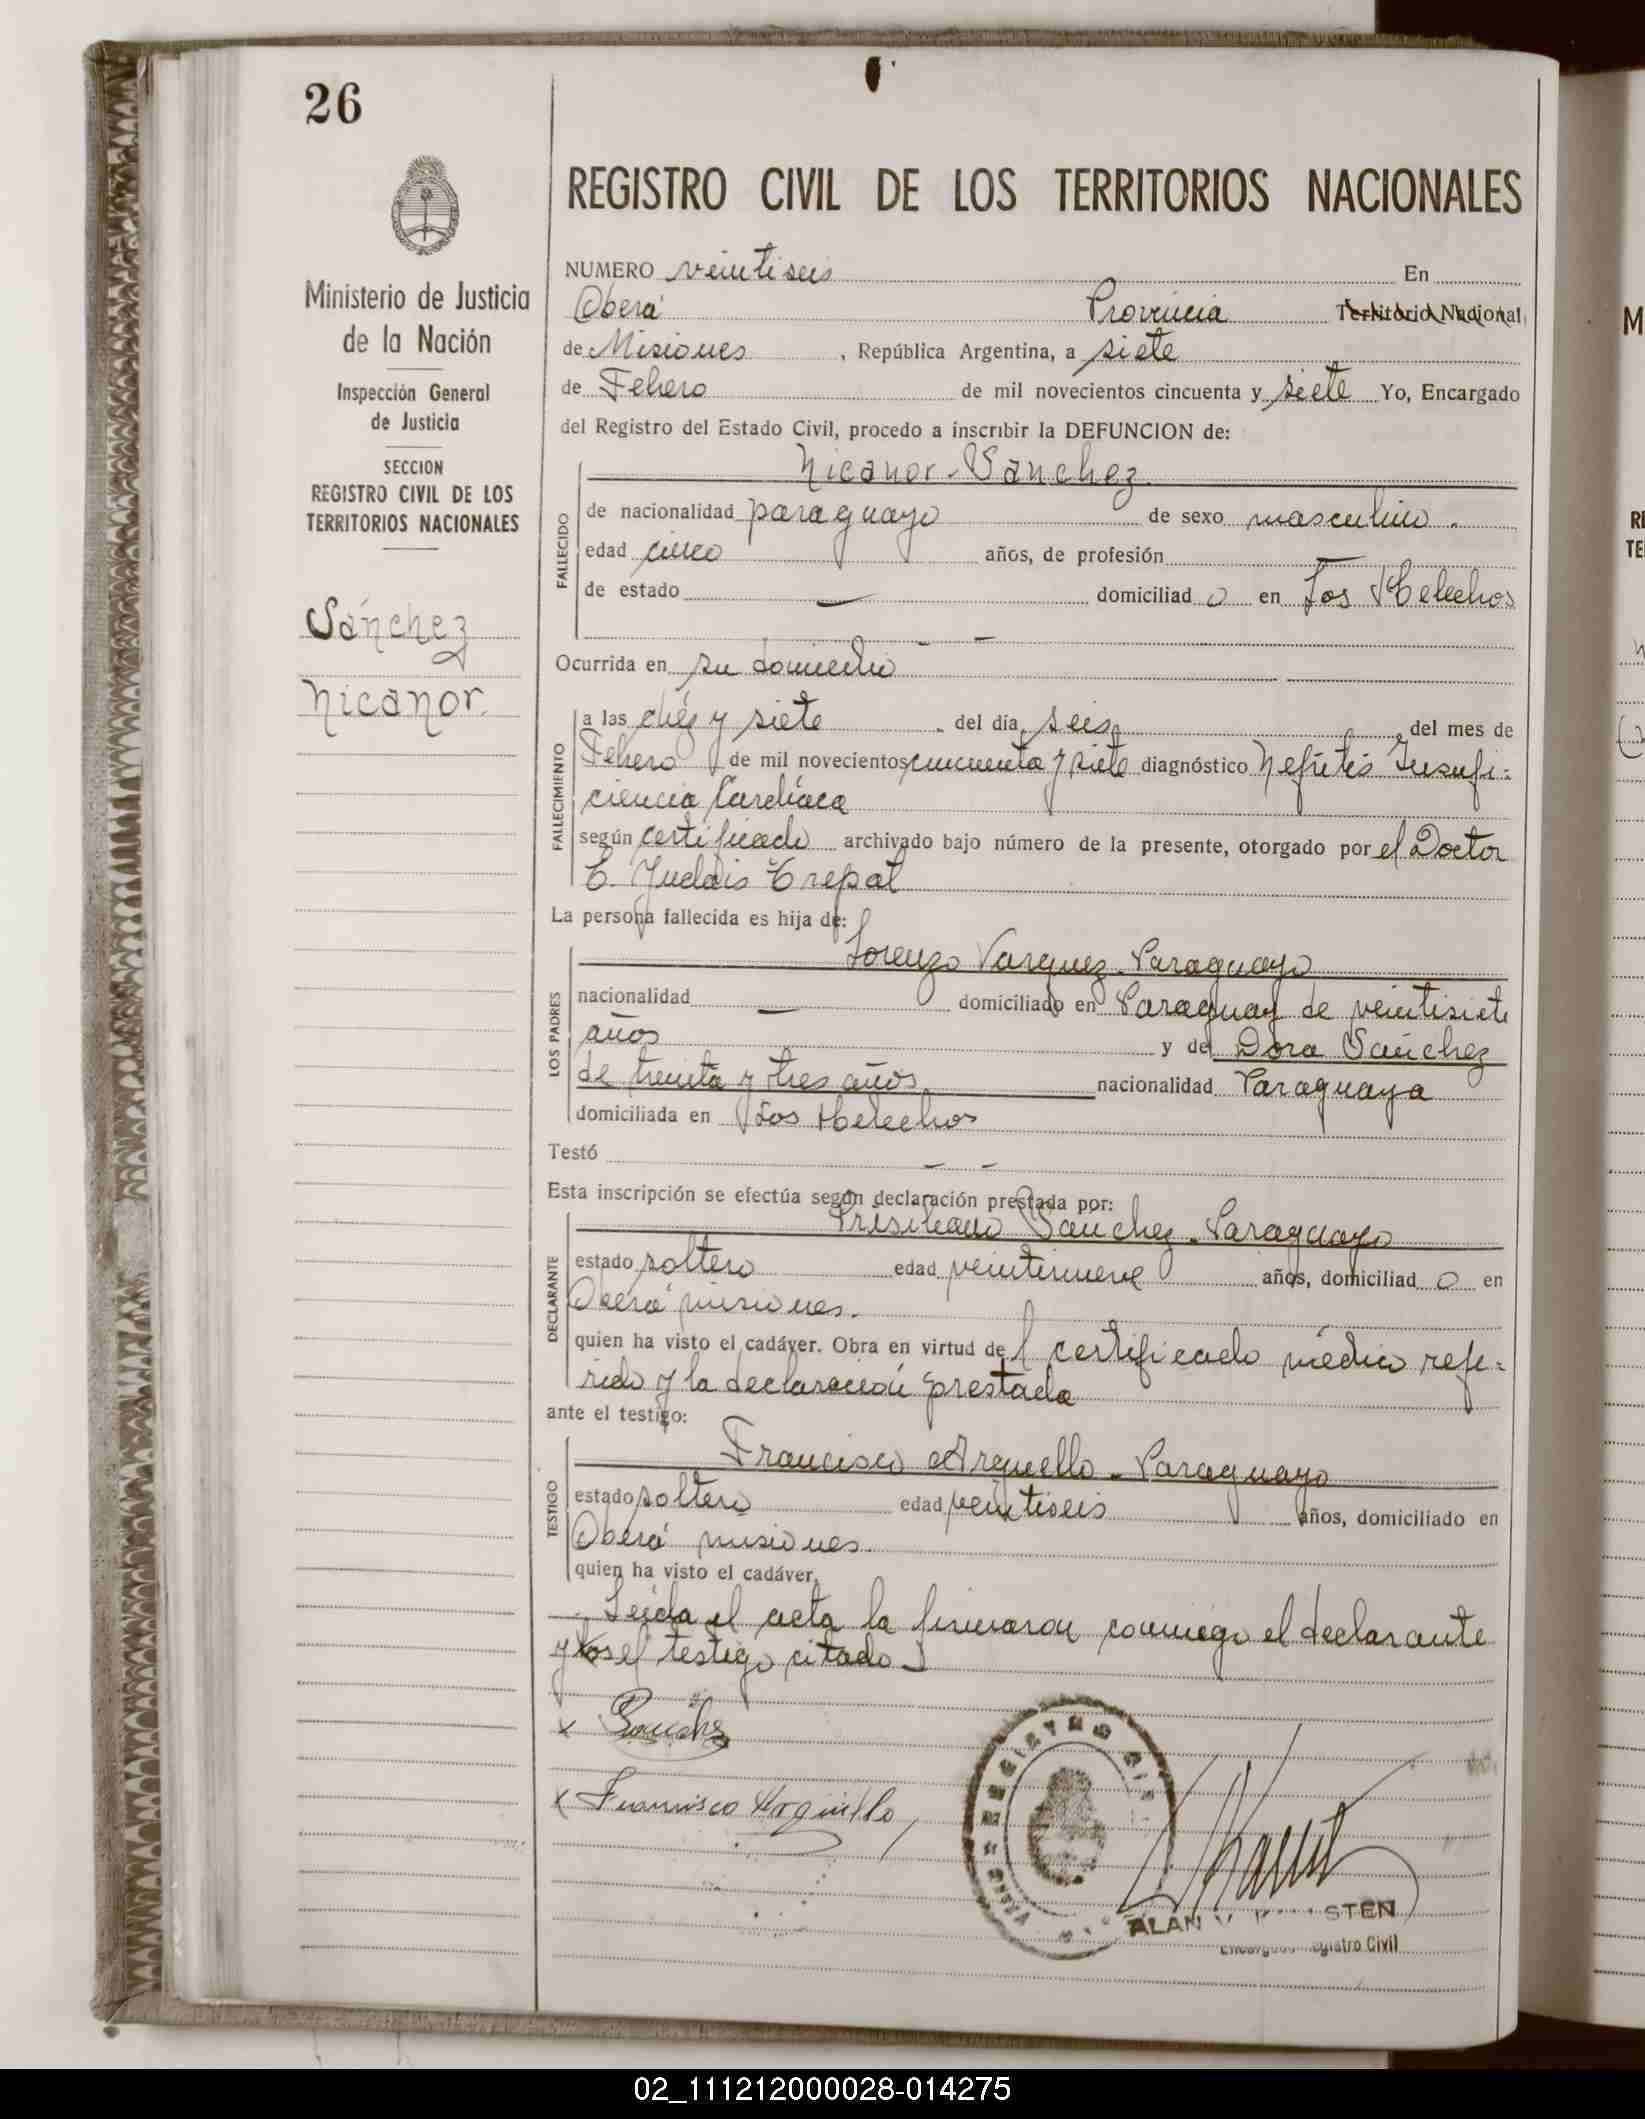 26
REGISTRO CIVIL DE LOS TERRITORIOS NACIONALES
Ministerio de Justicia
de la Nación
Inspección General
de Justicia
SECCION
REGISTRO CIVIL DE LOS
TERRITORIOS NACIONALES
Sánchez
Nicanor.
NUMERO veintiseis En
Oberá Provincia Territorio Nacional
de Misiones, República Argentina, a siete
de Febero de mil novecientos cincuenta y siete Yo, Encargado
del Registro del Estado Civil, procedo a inscribir la DEFUNCION de:
Nicanor-Sanchez
FALLECIDO
de nacionalidad paraguayo de sexo masculino.
edad cinco años, de profesión
de estado — domiciliad o en Los Helechos
— —
Ocurrida en su domicilio
FALLECIMIENTO
a las diéz y siete del día seis del mes de
Febero de mil novecientos cincuenta y siete diagnóstico Nefritis Insufi-
ciencia Cardíaca
según certificado archivado bajo número de la presente, otorgado por el Doctor
Trepat
La persona fallecida es hija de:
LOS PADRES
Lorenzo Varquez-Paraguayo
nacionalidad — domiciliado en Paraguay de veintisiete
años y de Dora Sánchez
de treinta y tres años nacionalidad Paraguaya
domiciliada en Los Helechos
Testó — —
Esta inscripción se efectúa según declaración prestada por:
DECLARANTE
Sanchez-Paraguayo
estado soltero edad veintinueve años, domiciliad o en
Oberá misiones.
quien ha visto el cadáver. Obra en virtud de l certificado médico refe-
rido y la declaración prestada
ante el testigo:
TESTIGO
Francisco Arguello-Paraguayo
estado soltero edad veintiseis años, domiciliado en
Oberá misiones.
quien ha visto el cadáver.
Leida el acta la firmaron conmigo el declarante
y los el testigo citado
x Sanchez
x Francisco Arguello
REGISTRO CIVIL
ALAN STEN
Registro Civil
02_111212000028-014275